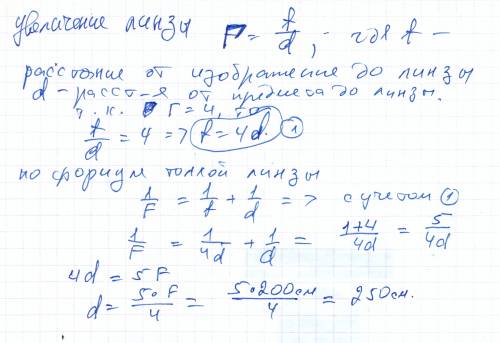 увеличение линзы Г = f/d, - где f -
расстояние от изображение до линзы
d - расст-е от предмета до линзы.
т.к. Г = 4, то
f/d = 4 => f = 4d. ①
по формуле тонкой линзы
1/F = 1/f + 1/d => с учетом ①
1/F = 1/4d + 1/d = 1+4/4d = 5/4d
4d = 5F
d = 5•F/4 = 5•200см/4 = 250см.